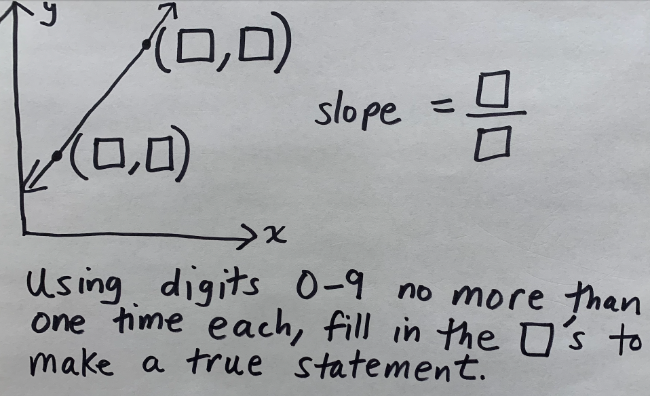 y
(□,□)
slope = □/□
(□,□)
x
Using digits 0-9 no more than
one time each, fill in the □'s to
make a true statement.